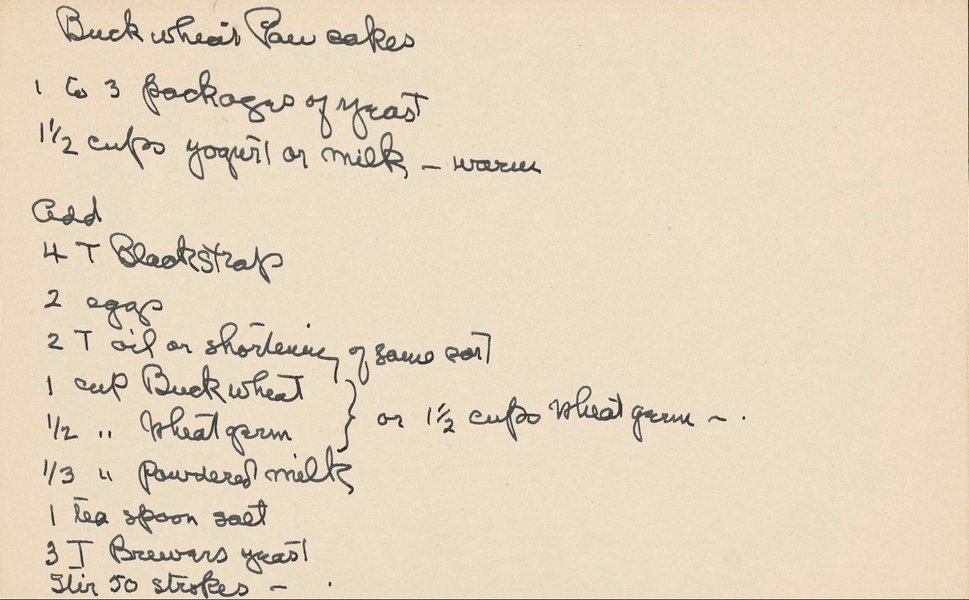 Buckwheat Pan cakes
1 to 3 packages of yeast
1 1/2 cups yogurt or milk – warm
Add
4 T Blackstrap
2 eggs
2 T oil or shortening of some sort
1 cup Buckwheat
1/2 " Wheat germ } or 1 1/2 cups Wheat germ – .
1/3 " powdered milk
1 tea spoon salt
3 T Brewers yeast
Stir 50 strokes – .